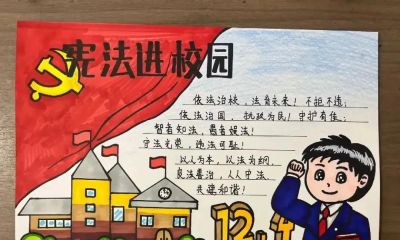 宪法进校园
依法治校，法育未来！不拒不违；
依法治国，执政为民！守护有佳；
智者知法，愚者娱法！
守法光荣，违法可耻！
以人为本，以法为纲，
良法善治，人人守法，
共建和谐！
12.4